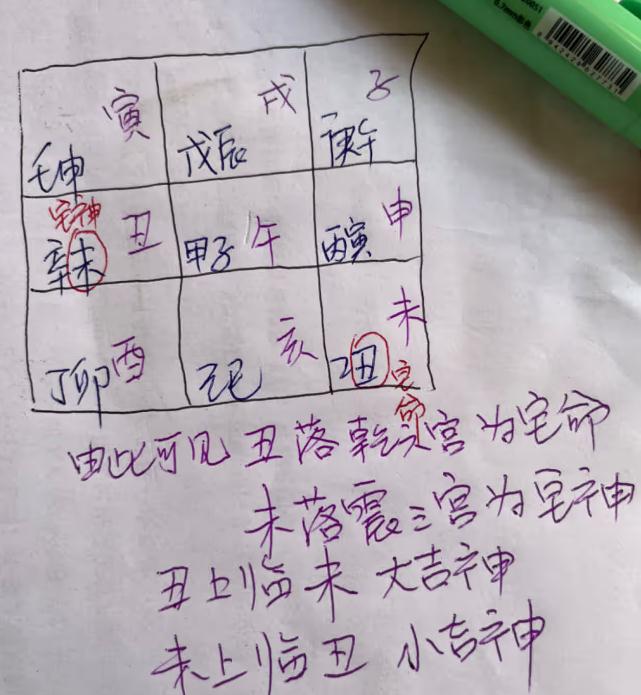 寅 戌 子
壬申 戊辰 庚午
宅神 丑 午 申
辛未 甲子 丙寅
酉 亥 未
丁卯 己巳 乙丑 宅命
由此可见 丑落乾六宫为宅命
未落震三宫为宅神
丑上临未 大吉神
未上临丑 小吉神